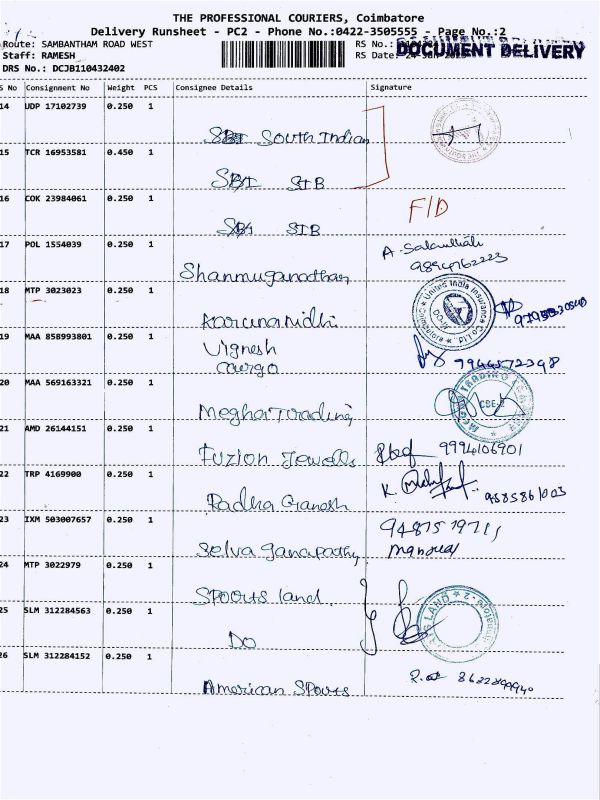 THE PROFESSIONAL COURIERS, Coimbatore
Delivery Runsheet - PC2 - Phone No.:0422-3505555 - Page No.:2
Route: SAMBANTHAM ROAD WEST
RS No.:
DOCUMENT DELIVERY
Staff: RAMESH
RS Date:
DRS No.: DCJB110432402
S No Consignment No Weight PCS Consignee Details Signature
14 UDP 17102739 0.250 1
SBI South Indian
15 TCR 16953581 0.450 1
SBI SIB
16 COK 23984061 0.250 1 F/D
SBI SIB
17 POL 1554039 0.250 1
Shanmuganathan
18 MTP 3023023 0.250 1
United India Insurance Co Ltd.
Coimbatore
Karunanidhi
19 MAA 858993801 0.250 1
Vignesh
cargo
20 MAA 569163321 0.250 1
TRADING
CBE-
Megha Trading
21 AMD 26144151 0.250 1 9994106901
Fuzion Jewells
22 TRP 4169900 0.250 1
9585861003
Radha Ganesh
23 IXM 503007657 0.250 1
Selva ganapathy
24 MTP 3022979 0.250 1
Spoorts land
25 SLM 312284563 0.250 1
LAND
Do
26 SLM 312284152 0.250 1
American Spoorts